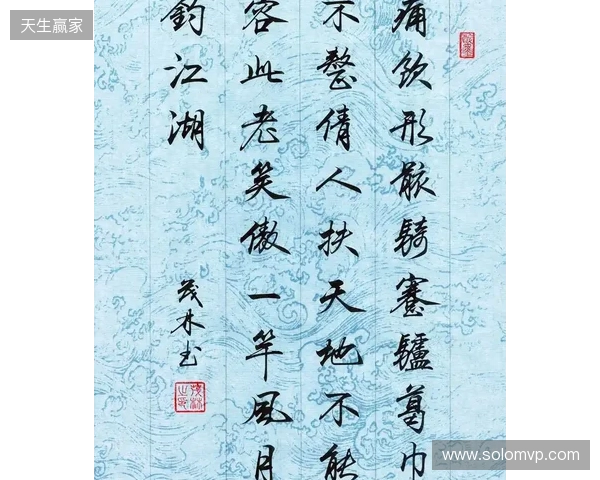 天生赢家
痛飲形骸騎蹇驢葛巾
不整倩人扶天地不能
容此老笑傲一竿風月
釣江湖
茂林书
www.solomvp.com